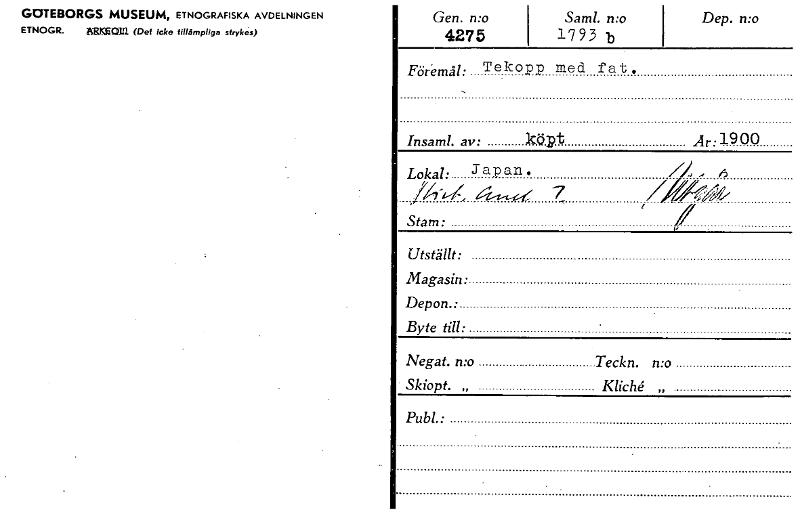 GÖTEBORGS MUSEUM, ETNOGRAFISKA AVDELNINGEN
ETNOGR. ARKEOL. (Det icke tillämpliga strykes)
Gen. n:o Saml. n:o Dep. n:o
4275 1793 b
Föremål: Tekopp med fat.
Insaml. av: köpt År: 1900
Lokal: Japan.
Stam:
Utställt:
Magasin:
Depon.:
Byte till:
Negat. n:o Teckn. n:o
Skiopt. „ Kliché „
Publ.: